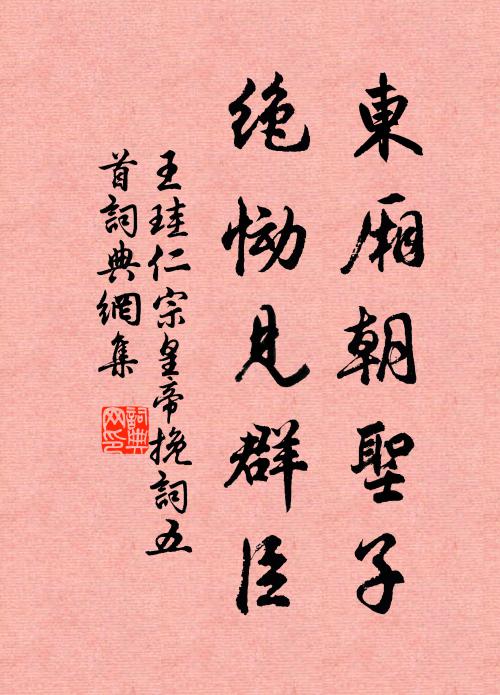 東廂朝聖子
絶慟見群臣
王珪仁宗皇帝挽詞五
首詞典網集
詞典
网印